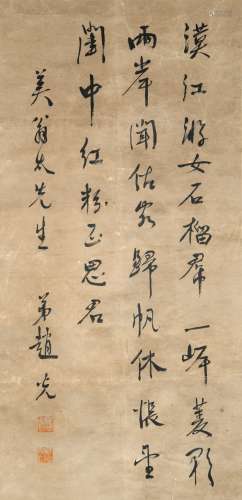 漢江游女石榴帬一菱歌
兩岸聞估客歸帆休悵望
閨中紅粉正思君
美翁太先生
弟趙光